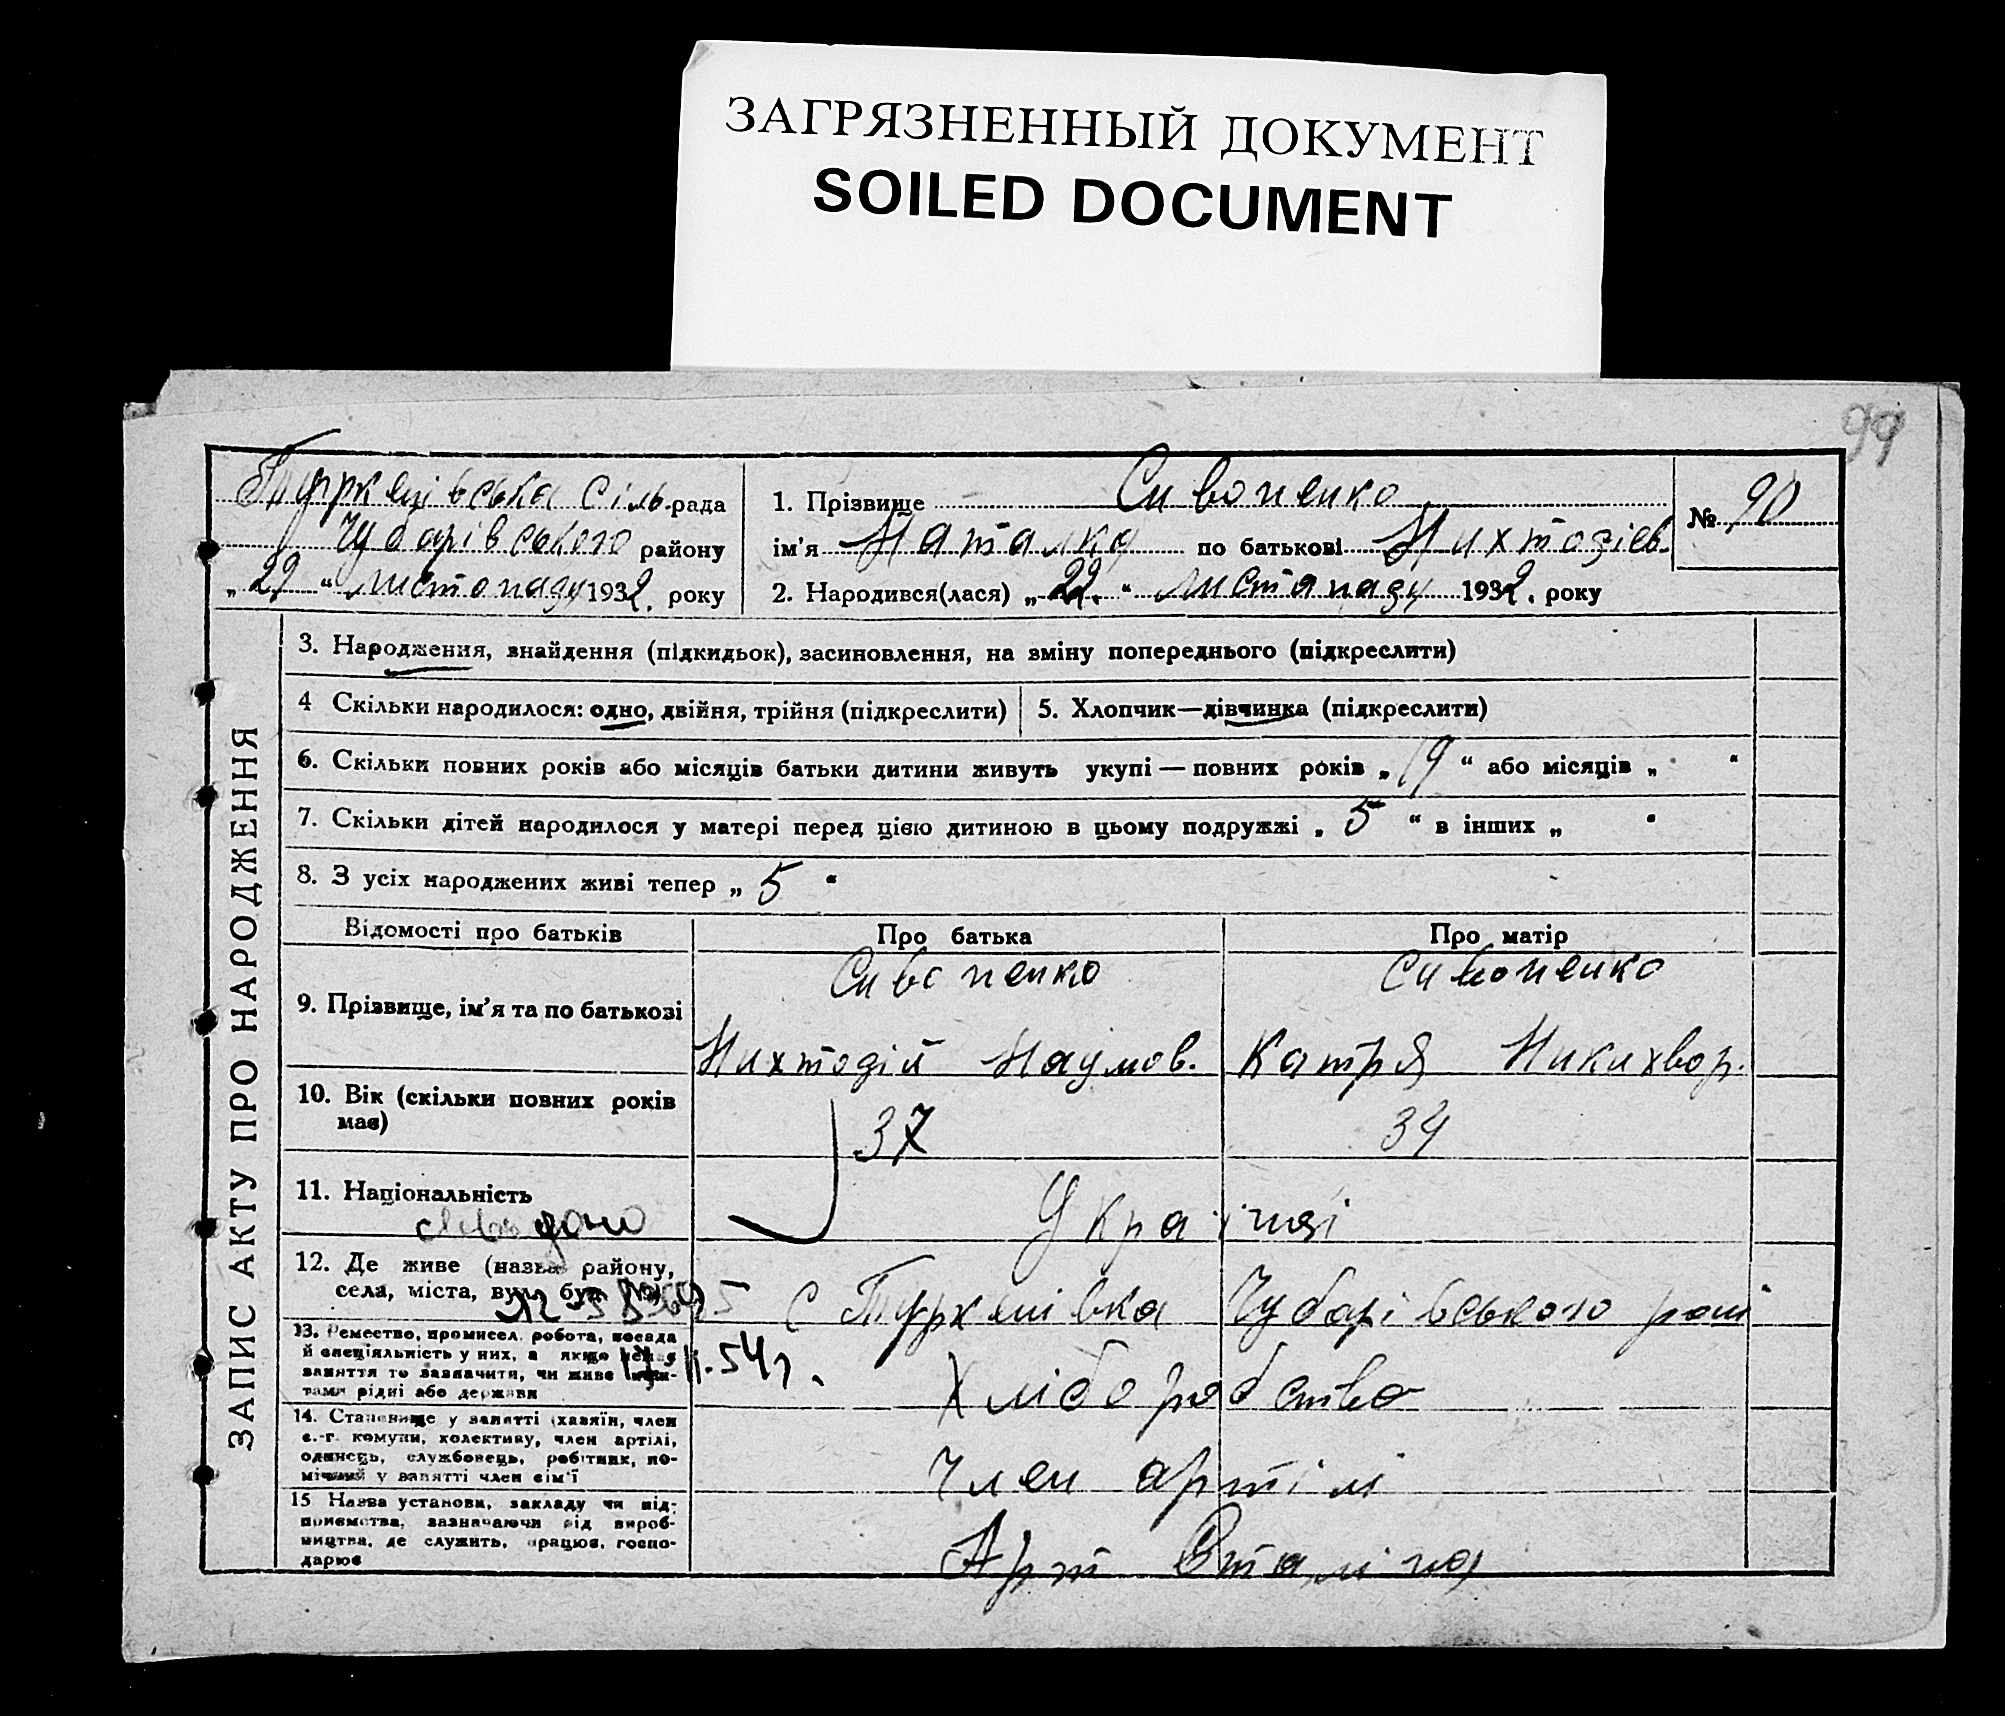 ЗАГРЯЗНЕННЫЙ ДОКУМЕНТ
SOILED DOCUMENT
99
Туркенівська сіль. рада
Чубарівського району
„ 29 “ листопаду 1932. року
1. Прізвище Сивоненко
ім'я Наталка по батькові Нихтодіев.
2. Народився(лася) „ 22. “ листападу 1932. року
№ 90
ЗАПИС АКТУ ПРО НАРОДЖЕННЯ
3. Народження, знайдення (підкидьок), засиновлення, на зміну попереднього (підкреслити)
4 Скільки народилося: одно, двійня, трійня (підкреслити)
5. Хлопчик—дівчинка (підкреслити)
6. Скільки повних років або місяців батьки дитини живуть укупі — повних років „ 19 “ або місяців „ “
7. Скільки дітей народилося у матері перед цією дитиною в цьому подружжі „ 5 “ в інших „ “
8. З усіх народжених живі тепер „ 5 “
Відомості про батьків
Про батька
Про матір
9. Прізвище, ім'я та по батькові
Сивоненко
Нихтодій Наумов.
Сивоненко
Катря Никихвор.
10. Вік (скільки повних років має)
37
34
11. Національність
Українці
12. Де живе (назва району,
села, міста, вул., буд. №)
с Туркенівка Чубарівського рай
13. Ремество, промисел, робота, посада
й спеціяльність у них, а якщо немає
заняття то зазначити, чи живе кош-
тами рідні або держави
17.II.54 г.
Хліборобство
14. Становище у занятті (хазяїн, член
с.-г. комуни, колективу, член артілі,
одинець, службовець, робітник, по-
мічний у занятті член сім'ї
Член артілі
15 Назва установи, закладу чи під-
приємства, зазначаючи рід вироб-
ництва, де служить, працює, госпо-
дарює
Арт Сталіна